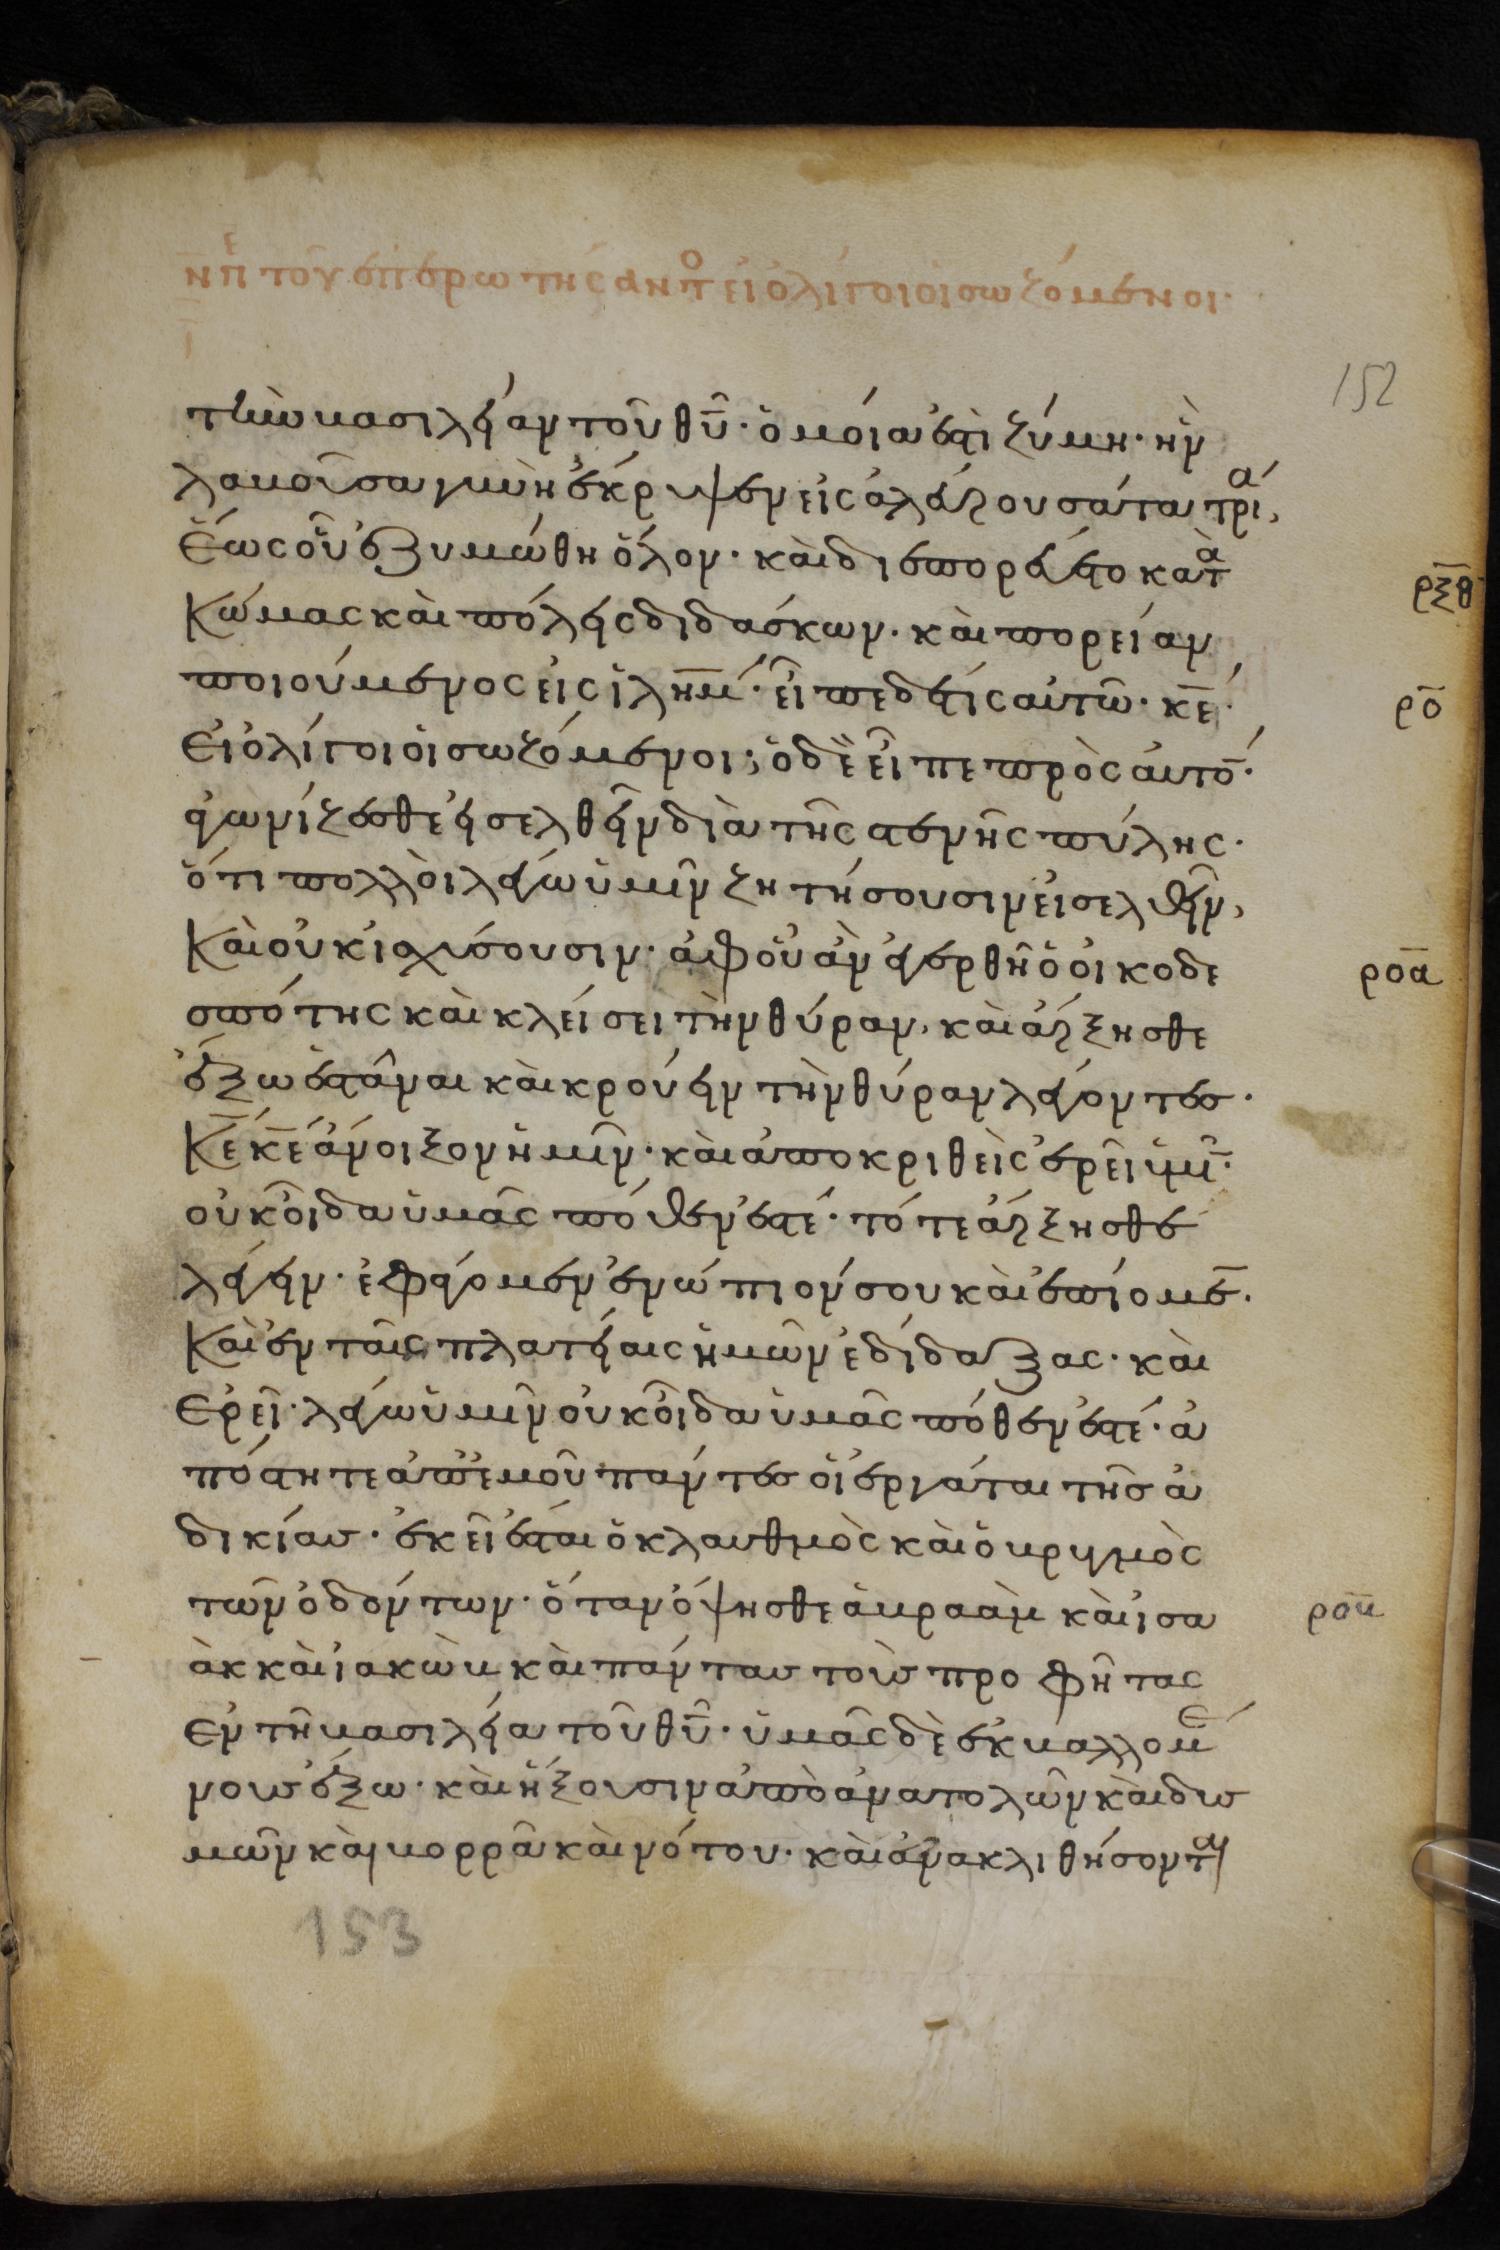 ν̅ πε̅ τοῦ ἐπερωτήσαντο εἰ ὀλίγοι οἱ σωζόμενοι·
152
τὴν βασιλείαν τοῦ θυ̅· ὁμοία ἐστὶ ζύμη· ἣν
λαβοῦσα γυνὴ ἔκρυψεν εἰς ἀλεύρου σάτα τρία,
ἕως οὗ ἐζυμώθη ὅλον· καὶ διεπορεύετο κατὰ
ρξθ
κώμας καὶ πόλεις διδάσκων· καὶ πορείαν
ποιούμενος εἰς ἰλη̅μ· εἶπε δέ τις αὐτῶ· κε̅·
ρο
εἰ ὀλίγοι οἱ σωζόμενοι; ὁ δὲ εἶπε πρὸς αὐτο̅·
ἀγωνίζεσθε εἰσελθεῖν διὰ τῆς στενῆς πύλης·
ὅτι πολλοὶ λέγω ὑμῖν ζητήσουσιν εἰσελθεῖν,
καὶ οὐκ ἰσχύσουσιν· ἀφ οὗ ἂν ἐγερθῆ ὁ οἰκοδε
ροα
σπότης καὶ κλείσει τὴν θύραν, καὶ ἄρξησθε
ἔξω ἑστάναι καὶ κρούειν τὴν θύραν λέγοντες·
κε̅ κε̅ ἄνοιξον ἡμῖν· καὶ ἀποκριθεὶς ἐρεῖ ὑμι̅·
οὐκ οἶδα ὑμᾶς πόθεν ἐστέ· τότε ἄρξησθε
λέγειν· ἐφάγομεν ἐνώπιόν σου καὶ ἐπίομε̅·
καὶ ἐν ταῖς πλατείαις ἡμῶν ἐδίδαξας· καὶ
ἐρεῖ· λέγω ὑμῖν οὐκ οἶδα ὑμᾶς πόθεν ἐστέ· ἀ
πόστητε ἀπ ἐμοῦ πάντες οἱ ἐργάται τῆς ἀ
δικίας· ἐκεῖ ἔσται ὁ κλαυθμὸς καὶ ὁ βρυγμὸς
τῶν ὀδόντων· ὅταν ὄψησθε ἀβραὰμ καὶ ἰσα
ροβ
ὰκ καὶ ἰακὼβ καὶ πάντας τοὺς προφῆτας
ἐν τῆ βασιλεία τοῦ θυ̅· ὑμᾶς δὲ ἐκβαλλομέ
νους ἔξω· καὶ ἥξουσιν ἀπὸ ἀνατολῶν καὶ δυσ
μῶν καὶ βορρᾶ καὶ νότου· καὶ ἀνακλιθήσονται
153